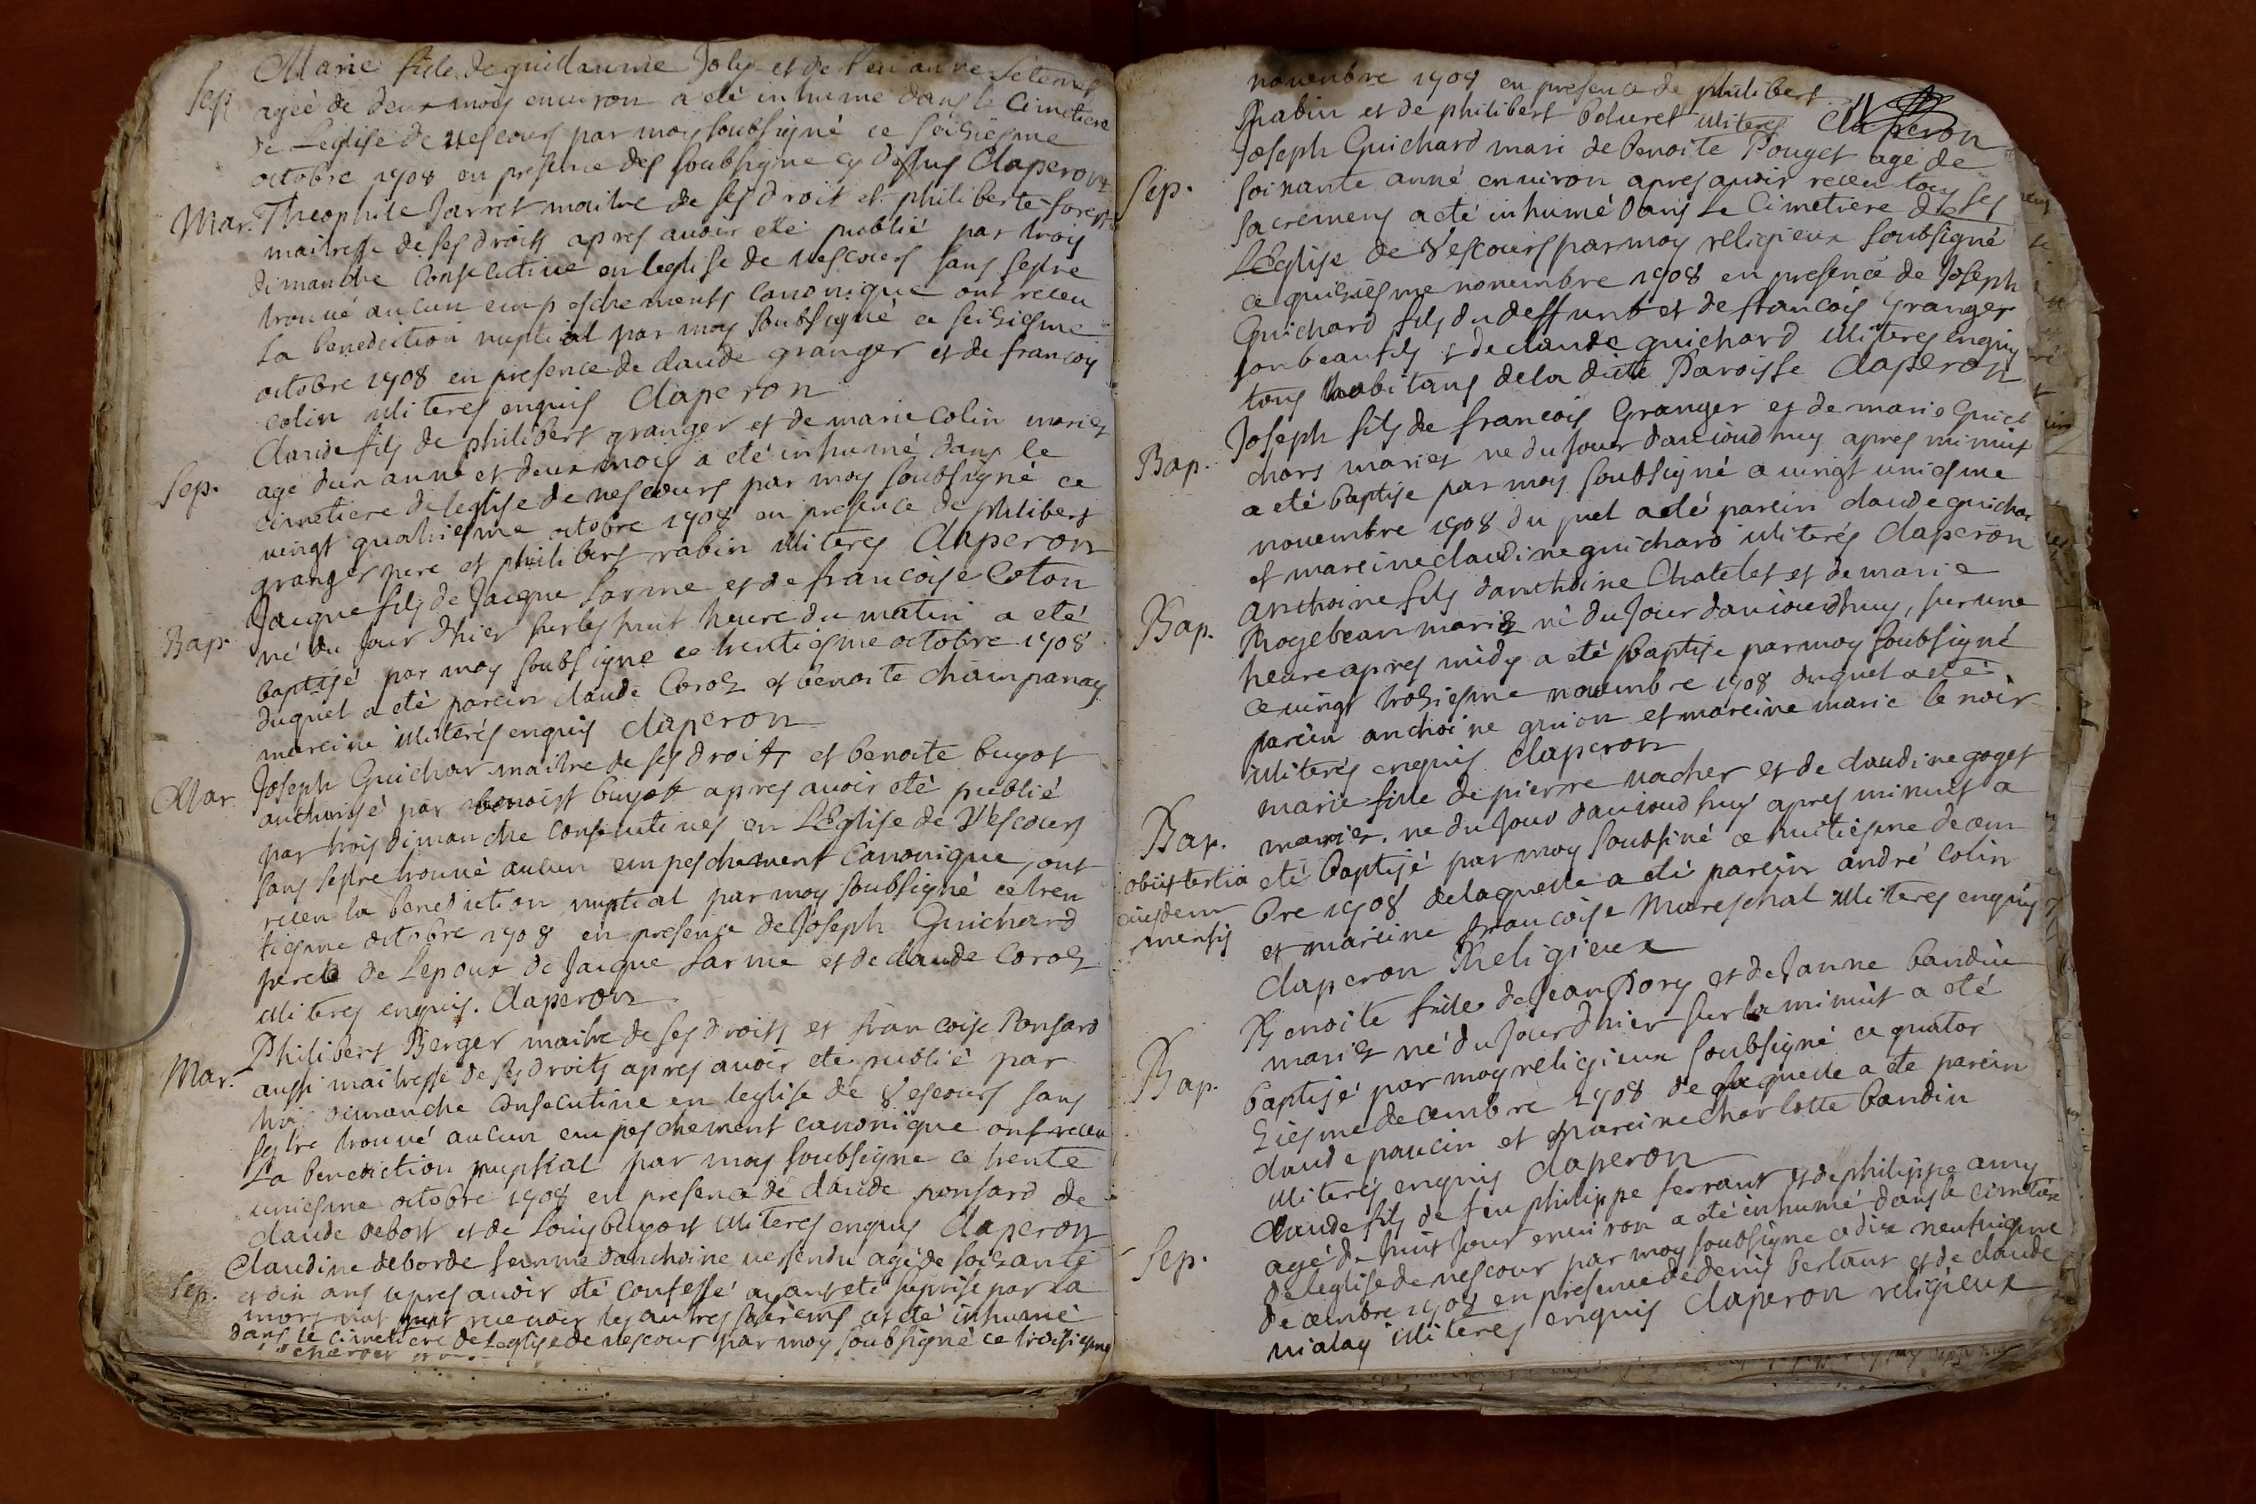 Sep. Marie fille de guillaume Joly et de
ageé de deux mois environ a eté inhumé dans le Cimetiere
de Leglise de vescours par moy soubsigné ce seisiesme
octobre 1708 en presence des soubsigne cy dessus Claperon
Mar. Theophile Jarret maitre de ses droit et philiberte forest
maitresse de ses droits apres avoir eté publié par trois
dimanche Consecutive en leglise de vescours sans sestre
trouvé aucun empeschements Canonique ont receu
La benediction nuptial par moy soubsigné ce seisiesme
octobre 1708 en presence de claude granger et de francois
colin illiteres enquis Claperon
Sep. Claude fils de philibert granger et de marie Colin mariez
agé dun anné et deux mois a eté inhumé dans le
cimetiere de leglise de vescours par moy soubsigné ce
vingt quatriesme octobre 1708 en presence de philibert
granger pere et philibert rabin illiteres Claperon
Bap. Jacque fils de Jacque Larme et de francoise Coton
né du Jour dhier sur les huit heure du matin a eté
baptisé par moy soubsigne ce trentiesme octobre 1708
duquel a eté parein claude Coroz et benoite champanay
mareine illiterés enquis claperon
Mar. Joseph Guichar maitre de ses droits et benoite buyot
authorisé par benoist buyot apres avoir eté publié
par trois dimanche Consecutives en LEglise de Vescours
sans sestre trouvé aucun empeschement Canonique, ont
receu la benediction nuptial par moy soubsigné ce tren
tiesme octobre 1708 en presence de Joseph Guichard
pere de Lepoux de Jacque Larme et de claude Coroz
illiteres enquis. Claperon
Mar. Philibert Berger maitre de ses droits et francoise Ponsard
aussi maitresse de ses droits apres avoir eté publié par
trois dimanche Consecutive en leglise de Vescours sans
sestre trouvé aucun empeschement canonique ont receu
La benediction nuptial par moy soubsigne ce trente
uniesme octobre 1708 en presence de claude ponsard de
claude debost et de Louis buyost illiteres enquis Claperon
Sep. Claudine deborde femme danthoine agé de soizante
et dix ans apres avoir eté Confessé ayant eté suprise par La
mort recevoir les autres sacremens at eté inhumé
dans le cimetiere de Leglise de vescour par moy soubsigné ce troisiesme
novembre 1708 en presence de philibert
Rabin et de philibert illiteres Claperon
Sep. Joseph Guichard mari de benoite Pouget agé de
soixante anné environ apres avoir receu tous ses
sacremens a eté inhumé dans Le Cimetiere de
LEglise de Vescours par moy religieux soubsigné
ce quinziesme novembre 1708 en presence de Joseph
Guichard fils du deffunt et de francois Granger
son beau fils et de claude guichard illiteres enquis
tous habitans de la dicte Paroisse Claperon
Bap. Joseph fils de francois Granger et de marie Guic
chard mariez ne du Jour daujoudhuy apres minuit
a eté baptise par moy soubsigné ce vingt uniesme
novembre 1708 du quel a eté parein claude guichar
et mareine claudine guichard illiterés Claperon
Bap. Anthoine fils danthoine Chatelet et de marie
Rogebeau mariez né du Jour daujourdhuy, sur une
heure apres midy a eté baptise par moy soubsigné
ce vingt troisiesme novembre 1708 duquel a eté
parein anthoine guion et mareine marie le noir
illiterés enquis Claperon
Bap. marie fille de pierre vacher et de claudine goget
mariez. ne du Jour daujoudhuy apres minuit a
eté baptisé par moy soubsiné ce huitiesme decem
obiit tertia
eiusdem
mensis
bre 1708 de laquelle a eté parein andré colin
et mareine francoise Mareschal illiteres enquis
Claperon Religieux
Bap. Benoite fille de Jean Pory et de Janne bandin
mariez né du Jour dhier sur la minuit a eté
baptisé par moy religieux soubsigné ce quator
ziesme decembre 1708 de laquelle a eté parein
claude paucin et mareine charlotte bandin
illiterés enquis Claperon
Sep. Claude fils de feu philippe ferrant et de philippe amy
agé de huit Jour environ a eté inhumé dans le cimetiere
de leglise de vescour par moy soubsigné ce dix neufviesme
decembre 1708 en presence de denis berlant et de claude
vialay illiteres enquis Claperon religieux